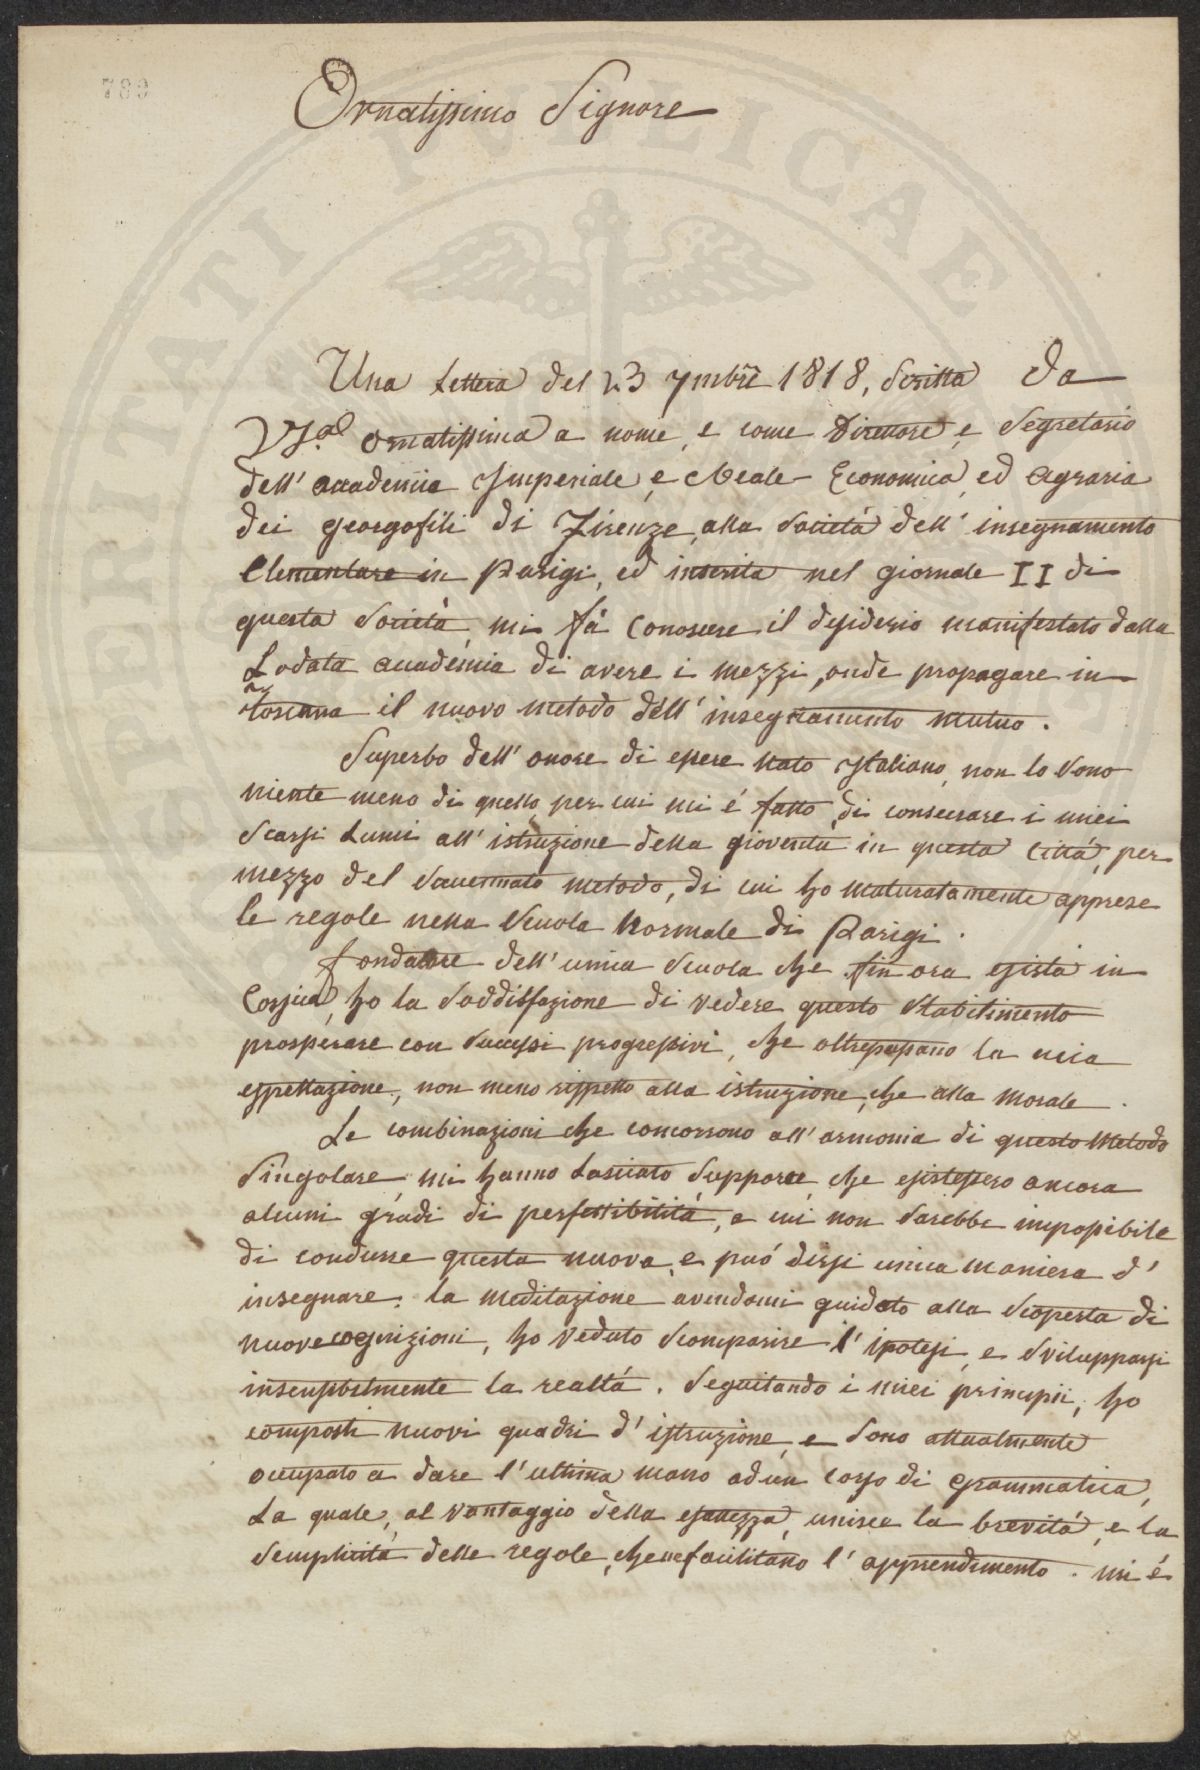 789
Ornatissimo Signore
Una Lettera del 23 7mbre 1818, Scritta da
VS.a ornatissima a nome, e come Direttore, e Segretario
dell' accademia Imperiale, e Reale Economica, ed agraria
dei georgofili di Firenze, alla Società dell' insegnamento
Elementare in Parigi, ed inserita nel giornale II di
questa Società, mi fà Conoscere il desiderio manifestato dalla
Lodata accademia di avere i mezzi, onde propagare in
toscana il nuovo metodo dell' insegnamento mutuo.
Superbo dell' onore di essere nato Italiano, non lo Sono
niente meno di quello, per cui mi é fatto, di consecrare i miei
Scarsi Lumi all' istruzione della gioventù in questa Città, per
mezzo del Sauennato metodo, di cui ho maturatamente apprese
le regole nella Scuola Normale di Parigi.
fondatore dell' unica Scuola che fin ora esista in
Corsica, ho la Soddisfazione di vedere questo Stabilimento
prosperare con Successi progressivi, che oltrepassano la mia
espettazione, non meno rispetto alla istruzione, che alla morale.
Le combinazioni che concorrono all' armonia di questo Metodo
Singolare, mi hanno Lasciato Supporre, che esistessero ancora
alcuni gradi di perfettibilità, a cui non Sarebbe impossibile
di condurre questa nuova, e puó dirsi unica maniera d'
insegnare. la meditazione avendomi guidato alla Scoperta di
nuove cognizioni, ho veduto Scomparire l' ipotesi, e Svilupparsi
insensibilmente la realtá. Seguitando i miei principii, ho
composti nuovi quadri d' istruzione, e Sono attualmente
occupato a dare l' ultima mano ad un corso di grammatica,
La quale, al vantaggio della esattezza, unisce la brevità, e la
Semplicità delle regole, che ne facilitano l' apprendimento. mi é